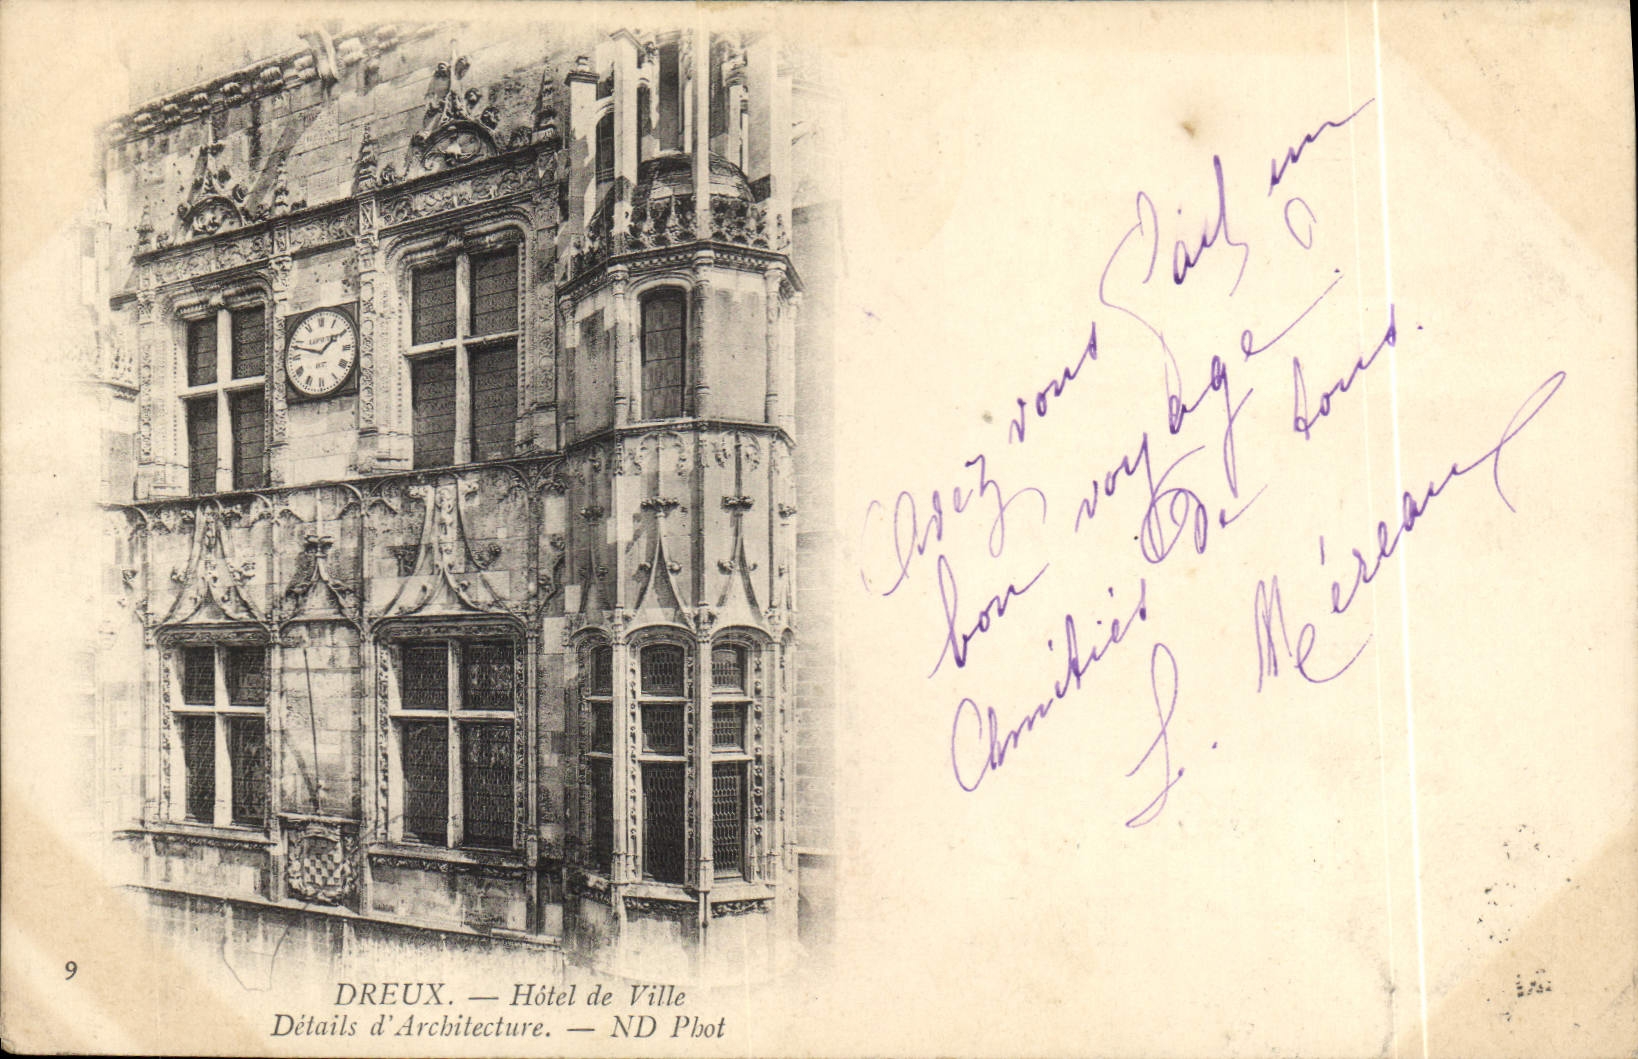 Avez vous fait un
bon voyage ?
Amitiés de tous.
L. Méreau
9
DREUX. — Hôtel de Ville
Détails d'Architecture. — ND Phot